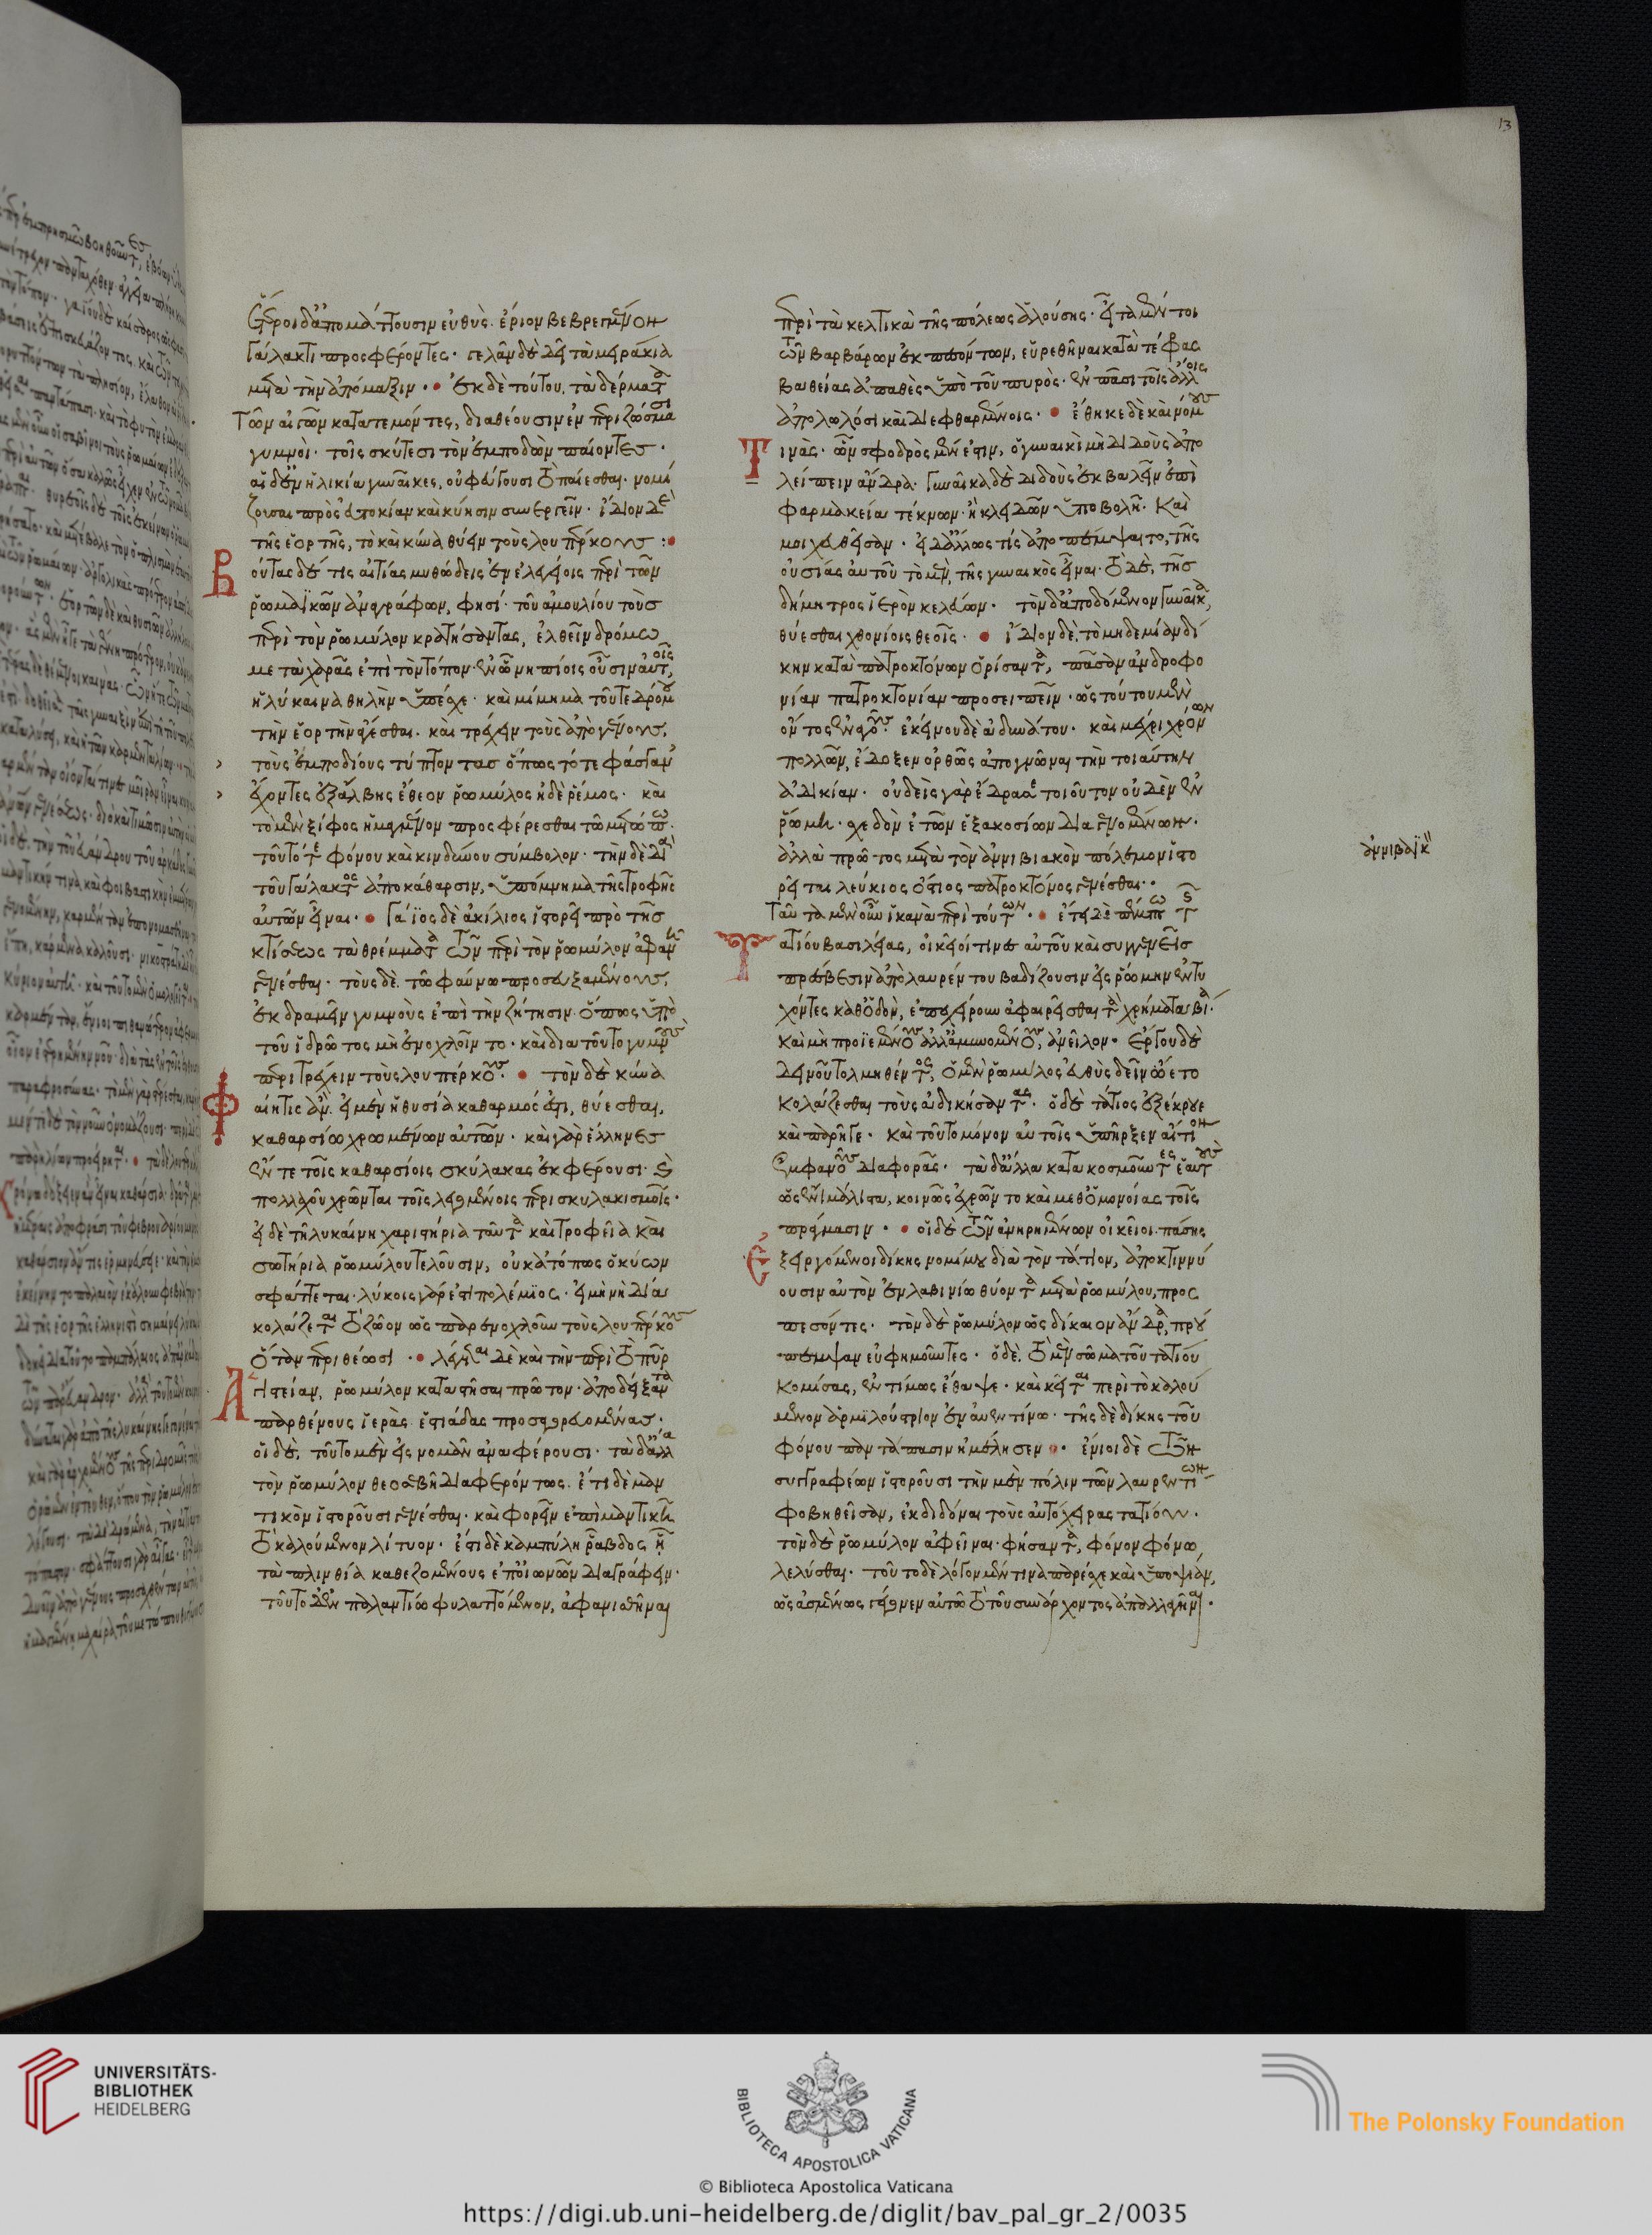 ἕτεροι δ' ἀπομάττουσιν εὐθὺς. ἔριον βεβρεγμένον
γάλακτι προσφέροντες. γελᾶν δὲ δεῖ τὰ μειράκια
μετὰ τὴν ἀπόμαξιν. ἐκ δὲ τούτου, τὰ δέρματα
τῶν αἰγῶν κατατεμόντες, διαθέουσιν ἐν περιζώσμασι
γυμνοὶ. τοῖς σκύτεσι τὸν ἐμποδὼν παίοντες.
αἱ δ' ἐν ἡλικία γυναῖκες, οὐ φεύγουσι τὸ παίεσθαι. νομί
ζουσαι πρὸς εὐτοκίαν καὶ κύησιν συνεργεῖν. ἴδιον δὲ
τῆς ἑορτῆς, τὸ καὶ κύνα θύειν τοὺς λουπέρκους:
Βούτας δέ τις αἰτίας μυθώδεις ἐν ἐλεγείοις περὶ τῶν
ῥωμαϊκῶν ἀναγράφων, φησὶ. τοῦ ἀμουλίου τοὺς
περὶ τὸν ῥωμύλον κρατήσαντας, ἐλθεῖν δρόμω
μετὰ χαρᾶς ἐπὶ τὸν τόπον. ἐν ὧ νηπίοις οὖσιν αὐτοῖς
ἡ λύκαινα θηλὴν ὑπέσχε. καὶ μίμημα τοῦτε δρόμου
τὴν ἑορτὴν ἄγεσθαι. καὶ τρέχειν τοὺς ἀπὸ γένους,
τοὺς ἐμποδίους τύπτοντας ὅπως τότε φάσγαν'
ἔχοντες ἐξ ἄλβης ἔθεον ῥωμύλος ἠδὲ ῥέμος. καὶ
τὸ μὲν ξίφος ἡμαγμένον προσφέρεσθαι τῶ μετώπω.
τοῦ τότε φόνου καὶ κινδύνου σύμβολον. τὴν δὲ διὰ
τοῦ γάλακτος ἀποκάθαρσιν, ὑπόμνημα τῆς τροφῆς
αὐτῶν εἶναι. γάϊος δὲ ἀκίλιος ἱστορεῖ πρὸ τῆς
κτίσεως τὰ θρέμματα τῶν περὶ τὸν ῥωμύλον ἀφανῆ
γενέσθαι. τοὺς δὲ, τῶ φαύνω προσευξαμένους,
ἐκδραμεῖν γυμνοὺς ἐπὶ τὴν ζήτησιν. ὅπως ὑπὸ
τοῦ ἱδρῶτος μὴ ἐνοχλοῖντο. καὶ διὰ τοῦτο γυμνοὺς
περιτρέχειν τοὺς λουπέρκους. τὸν δὲ κύνα
Φαίη τις ἄν. εἰ μὲν ἡ θυσία καθαρμός ἐστι, θύεσθαι,
καθαρσίω χρωμένων αὐτῶν. καὶ γὰρ ἕλληνες
ἔν τε τοῖς καθαρσίοις σκύλακας ἐκφέρουσι. καὶ
πολλαχοῦ χρῶνται τοῖς λεγομένοις περισκυλακισμοῖς.
εἰ δὲ τῆ λυκαίνη χαριστήρια ταῦτα καὶ τροφεῖα καὶ
σωτήρια ῥωμύλου τελοῦσιν, οὐκ ἀτόπως ὁ κύων
σφάττεται. λύκοις γάρ ἐστι πολέμιος. εἰ μὴ νὴ δία
κολάζεται τὸ ζῶον ὡς παρενοχλοῦν τοὺς λουπέρκους
ὅταν περιθέωσι. λέγεται δὲ καὶ τὴν περὶ τὸ πῦρ
Ἁγιστείαν, ῥωμύλον καταστῆσαι πρῶτον. ἀποδείξαντα
παρθένους ἱερὰς ἑστιάδας προσαγορευομένας.
οἱ δὲ, τοῦτο μὲν εἰς νομᾶν ἀναφέρουσι. τὰ δ' ἄλλα
τὸν ῥωμύλον θεοσεβῆ διαφερόντως. ἔτι δὲ μαν
τικὸν ἱστοροῦσι γενέσθαι. καὶ φορεῖν ἐπὶ μαντικῆ
τὸ καλούμενον λίτυον. ἔστι δὲ καμπύλη ῥάβδος, ἧ
τὰ πλινθία καθεζομένους ἐπ' οἰωνῶν διαγράφειν.
τοῦτο δ' ἐν παλαντίω φυλαττόμενον, ἀφανισθῆναι
περὶ τὰ κελτικὰ τῆς πόλεως ἁλούσης. εἶτα μέντοι
τῶν βαρβάρων ἐκπεσόντων, εὑρεθῆναι κατὰ τέφρας
βαθείας ἀπαθὲς ὑπὸ τοῦ πυρὸς. ἐν πᾶσι τοῖς ἄλλοις
ἀπολωλόσι καὶ διεφθαρμένοις. ἔθηκε δὲ καὶ νόμους
Τινὰς. ὧν σφοδρὸς μέν ἐστιν, ὁ γυναικὶ μὴ διδοὺς ἀπο
λείπειν ἄνδρα. γυναῖκα δὲ διδοὺς ἐκβαλεῖν ἐπὶ
φαρμακεία τέκνων. ἢ κλειδῶν ὑποβολῆ. καὶ
μοιχευθεῖσαν. εἰ δ' ἄλλως τίς ἀποπέμψαιτο, τῆς
οὐσίας αὐτοῦ τὸ μὲν, τῆς γυναικὸς εἶναι. τὸ δὲ, τῆς
δήμητρος ἱερὸν κελεύων. τὸν δ' ἀποδόμενον γυναῖκα,
θύεσθαι χθονίοις θεοῖς. ἴδιον δὲ, τὸ μηδεμίαν δί
κην κατὰ πατροκτόνων ὁρίσαντα, πᾶσαν ἀνδροφο
νίαν πατροκτονίαν προσειπεῖν. ὡς τούτου μὲν
ὄντος ἐναγοῦς. ἐκείνου δὲ ἀδυνάτου. καὶ μέχρι χρόνων
πολλῶν, ἔδοξεν ὀρθῶς ἀπογνῶναι τὴν τοιαύτην
ἀδικίαν. οὐδεὶς γὰρ ἔδρασε τοιοῦτον οὐδὲν ἐν
ῥώμη. σχεδὸν ἐτῶν ἑξακοσίων διαγενομένων.
ἀλλὰ πρῶτος μετὰ τὸν ἀννιβιακὸν πόλεμον ἱστο
ρεῖται λεύκιος ὅστιος πατροκτόνος γενέσθαι.
ταῦτα μὲν οὖν ἱκανὰ περὶ τούτων. ἔτει δὲ πέμπτω τῆς
Τατίου βασιλείας, οἰκεῖοί τινες αὐτοῦ καὶ συγγενεῖς
πρέσβεσιν ἀπὸ λαυρέντου βαδίζουσιν εἰς ῥώμην ἐντυ
χόντες καθ' ὁδὸν, ἐπεχείρουν ἀφαιρεῖσθαι τὰ χρήματα βία.
καὶ μὴ προϊεμένους ἀλλ' ἀμυνομένους, ἀνεῖλον. ἔργου δὲ
δεινοῦ τολμηθέντος, ὁ μὲν ῥωμύλος εὐθὺς δεῖν ὤετο
κολάζεσθαι τοὺς ἀδικήσαντας. ὁ δὲ τάτιος ἐξέκρουε
καὶ παρῆγε. καὶ τοῦτο μόνον αὐτοῖς ὑπῆρξεν αἴτιον
ἐμφανοῦς διαφορᾶς. τὰ δ' ἄλλα κατακοσμοῦντες ἑαυτοὺς
ὡς ἔνι μάλιστα, κοινῶς ἐχρῶντο καὶ μεθ' ὁμονοίας τοῖς
πράγμασιν. οἱ δὲ τῶν ἀνηρημένων οἰκεῖοι πάσης
Ἐξειργόμενοι δίκης νομίμου διὰ τὸν τάτιον, ἀποκτιννύ
ουσιν αὐτὸν ἐν λαβινίω θύοντα μετὰ ῥωμύλου, προς
πεσόντες. τὸν δὲ ῥωμύλον ὡς δίκαιον ἄνδρα, πρού
πεμψαν εὐφημοῦντες. ὁ δὲ, τὸ μὲν σῶμα τοῦ τατίου
κομίσας, ἐντίμως ἔθαψε. καὶ κεῖται περὶ τὸ καλού
μενον ἀρμιλούστριον ἐν ἀυεντίνω. τῆς δὲ δίκης τοῦ
φόνου παντάπασιν ἠμέλησεν. ἔνιοι δὲ τῶν
συγγραφέων ἱστοροῦσι τὴν μὲν πόλιν τῶν λαυρεντίων
φοβηθεῖσαν, ἐκδιδόναι τοὺς αὐτόχειρας τατίου.
τὸν δὲ ῥωμύλον ἀφεῖναι. φήσαντα, φόνον φόνω
λελύσθαι. τοῦτο δὲ λόγον μέν τινα παρέσχε καὶ ὑποψίαν,
ὡς ἀσμένως γέγονεν αὐτῶ τὸ τοῦ συνάρχοντος ἀπαλλαγῆναι.
ἀννιβαϊκ
13
UNIVERSITÄTS-
BIBLIOTHEK
HEIDELBERG
BIBLIOTECA APOSTOLICA VATICANA
The Polonsky Foundation
© Biblioteca Apostolica Vaticana
https://digi.ub.uni-heidelberg.de/diglit/bav_pal_gr_2/0035